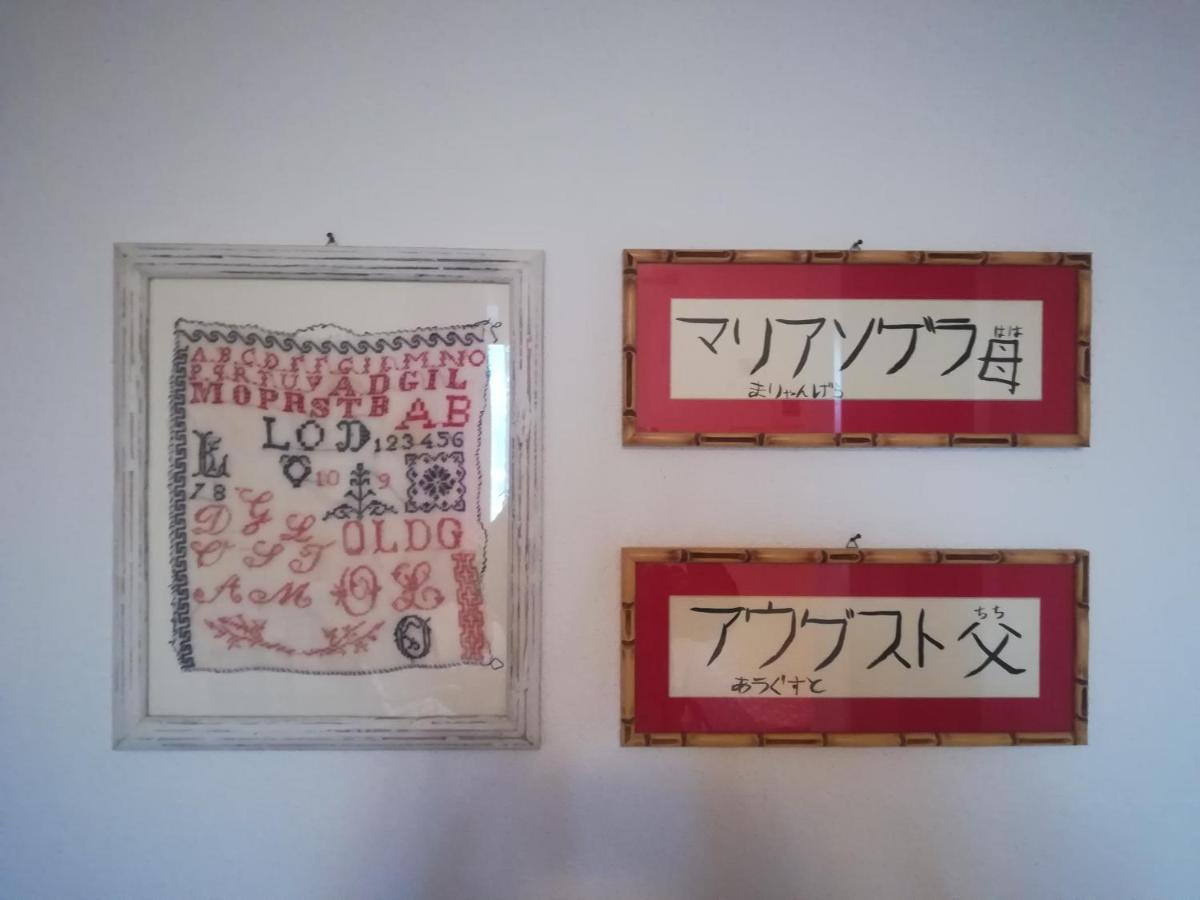 A B C D E F G I L M N O
P Q R T U V A D G I L
M O P R S T B A B
L O D 1 2 3 4 5 6
L 10 9
7 8
D G L O L D G
C S T
A M O L
マリアソゲラ母
はは
まりゃんげら
アウグスト父
ちち
あうぐすと